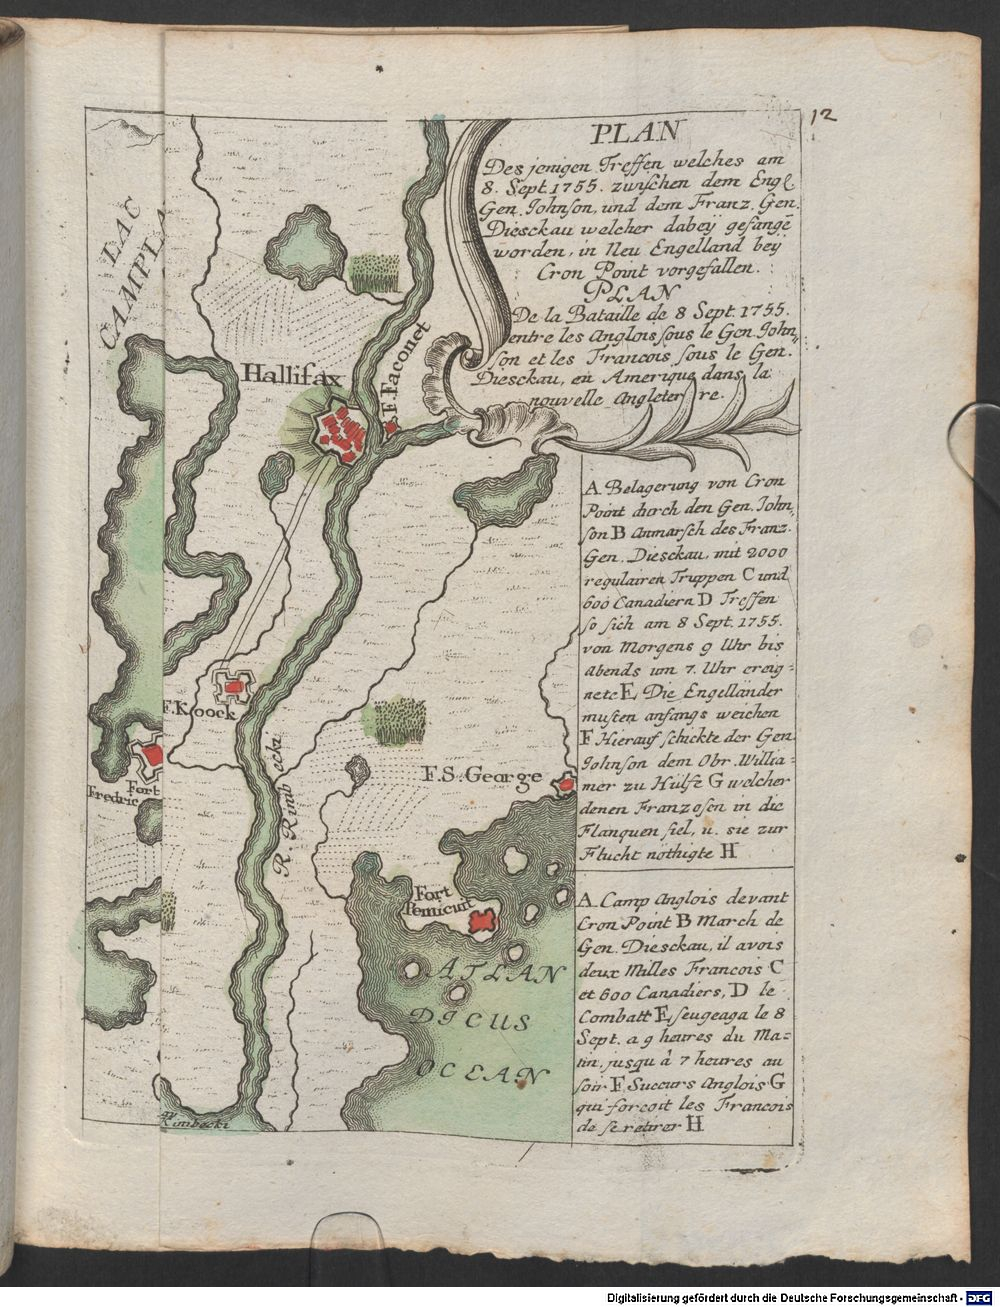 12
PLAN
Des jenigen Treffen welches am
8. Sept. 1755. zwischen dem Engl.
Gen. Johnson, und dem Franz. Gen.
Diesckau welcher dabeÿ gefangē
worden, in Neu Engelland beÿ
Cron Point vorgefallen.
PLAN
De la Bataille de 8 Sept. 1755.
entre les Anglois sous le Gen. John-
son et les Francois sous le Gen.
Diesckau, en Amerique dans la
nouvelle Angleterre.
LAC
CAMPLA
Hallifax
F. Faconet
F. Koock
Fort
Fredric
R. Rinibecka
F. S. George
Fort
Pemicuit
ATLAN
DICUS
OCEAN
A Belagerung von Cron
Point durch den Gen. John-
son B Anmarsch des Franz.
Gen. Diesckau, mit 2000
regulairen Truppen C und
600 Canadiern D Treffen
so sich am 8 Sept. 1755.
von Morgens 9 Uhr bis
abends um 7. Uhr ereig-
nete E Die Engelländer
musten anfangs weichen
F Hierauf schickte der Gen.
Johnson dem Obr. Willia-
mer zu Hülfe G welcher
denen Franzosen in die
Flanquen fiel, u. sie zur
Flucht nöthigte H
A Camp Anglois devant
Cron Point B March de
Gen. Diesckau, il avois
deux Milles Francois C
et 600 Canadiers, D le
Combatt E seugeaga le 8
Sept. a 9 heures du Ma-
tin, jusqu à 7 heures au
soir F Succurs Anglois G
qui forcoit les Francois
de se retirer H
Digitalisierung gefördert durch die Deutsche Forschungsgemeinschaft - DFG